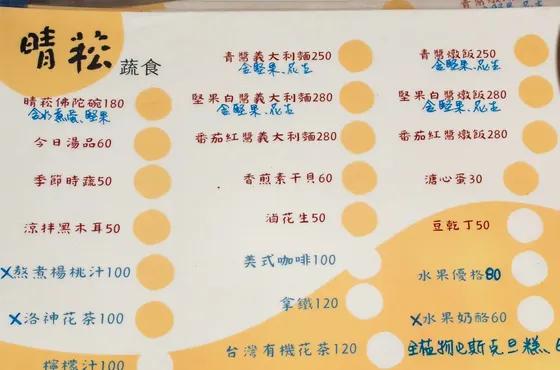 晴菘蔬食
晴菘佛陀碗180
今日湯品60
季節時蔬50
涼拌黑木耳50
X熬煮楊桃汁100
X洛神花茶100
檸檬汁100
青醬義大利麵250
含堅果、起士
堅果白醬義大利麵280
含堅果、起士
番茄紅醬義大利麵280
香煎素干貝60
滷花生50
美式咖啡100
拿鐵120
台灣有機花茶120
青醬燉飯250
含堅果、起士
堅果白醬燉飯280
含堅果、起士
番茄紅醬燉飯280
溏心蛋30
豆乾丁50
水果優格80
X水果奶酪60
全植物巴斯克蛋糕